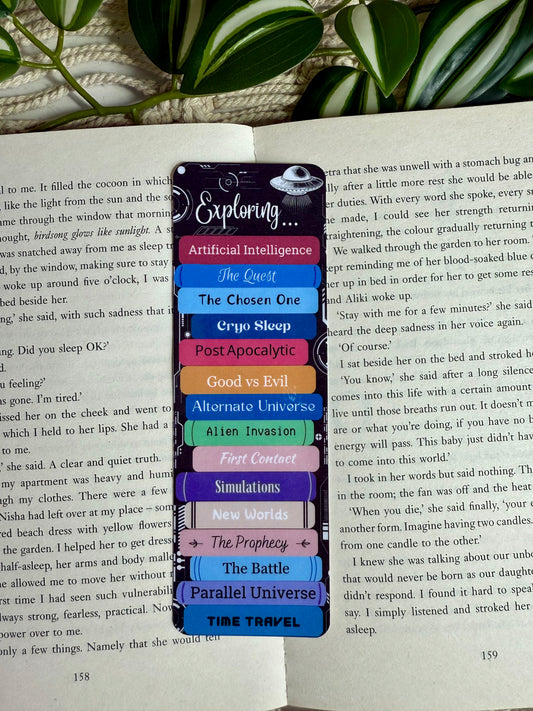 al to me. It filled the cocoon in which
like the light from the sun and the so
me through the window that mornin
ought, birdsong glows like sunlight. A s
was snatched away from me as sleep tr
d, by the window, making sure to stay
woke up around five o'clock, I was
bed beside her.
ng,' she said, with such sadness that i
ng. Did you sleep OK?'
d.
u feeling?'
as gone. I'm tired.'
issed her on the cheek and went to
which I held to her lips. She had a
to me.
,' she said. A clear and quiet truth.
my apartment was heavy and humi
ugh my clothes. There were a few
Nisha had left over at my place – som
red beach dress with yellow flowers
the garden. I helped her to get dress
half-asleep, her arms and body malle
he allowed me to move her without
rst time I had seen such vulnerabili
lways strong, fearless, practical. Now
power over to me.
only a few things. Namely that she would tell
158
Exploring...
Artificial Intelligence
The Quest
The Chosen One
Cryo Sleep
Post Apocalytic
Good vs Evil
Alternate Universe
Alien Invasion
First Contact
Simulations
New Worlds
The Prophecy
The Battle
Parallel Universe
TIME TRAVEL
tra that she was unwell with a stomach bug an
lly after a little more rest she would be able
r duties. With every word she spoke, every s
made, I could see her strength returnin
raightening, the colour gradually returning t
We walked through the garden to her room.
kept reminding me of her blood-soaked blue d
er up in bed in order for her to get some res
and Aliki woke up.
'Stay with me for a few minutes?' she said
heard the deep sadness in her voice again.
'Of course.'
I sat beside her on the bed and stroked he
'You know,' she said after a long silence
comes into this life with a certain amount
live until those breaths run out. It doesn't m
are or what you're doing, if you have no b
energy will pass. This baby just didn't hav
to come into this world.'
I took in her words but said nothing. Th
in the room; the fan was off and the heat
'When you die,' she said finally, 'your
another form. Imagine having two candles.
from one candle to the other.'
I knew she was talking about our unbo
that would never be born as our daught
didn't respond. I found it hard to spea
say. I simply listened and stroked her
asleep.
159